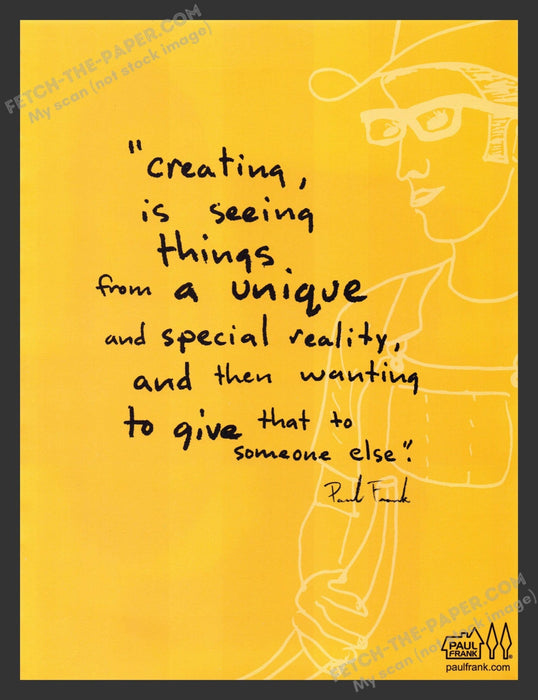 FETCH-THE-PAPER.COM
My scan (not stock image)
"creating,
is seeing
things
from a unique
and special reality,
and then wanting
to give that to
someone else".
Paul Frank
FETCH-THE-PAPER.COM
My scan (not stock image)
PAUL
FRANK
®
paulfrank.com